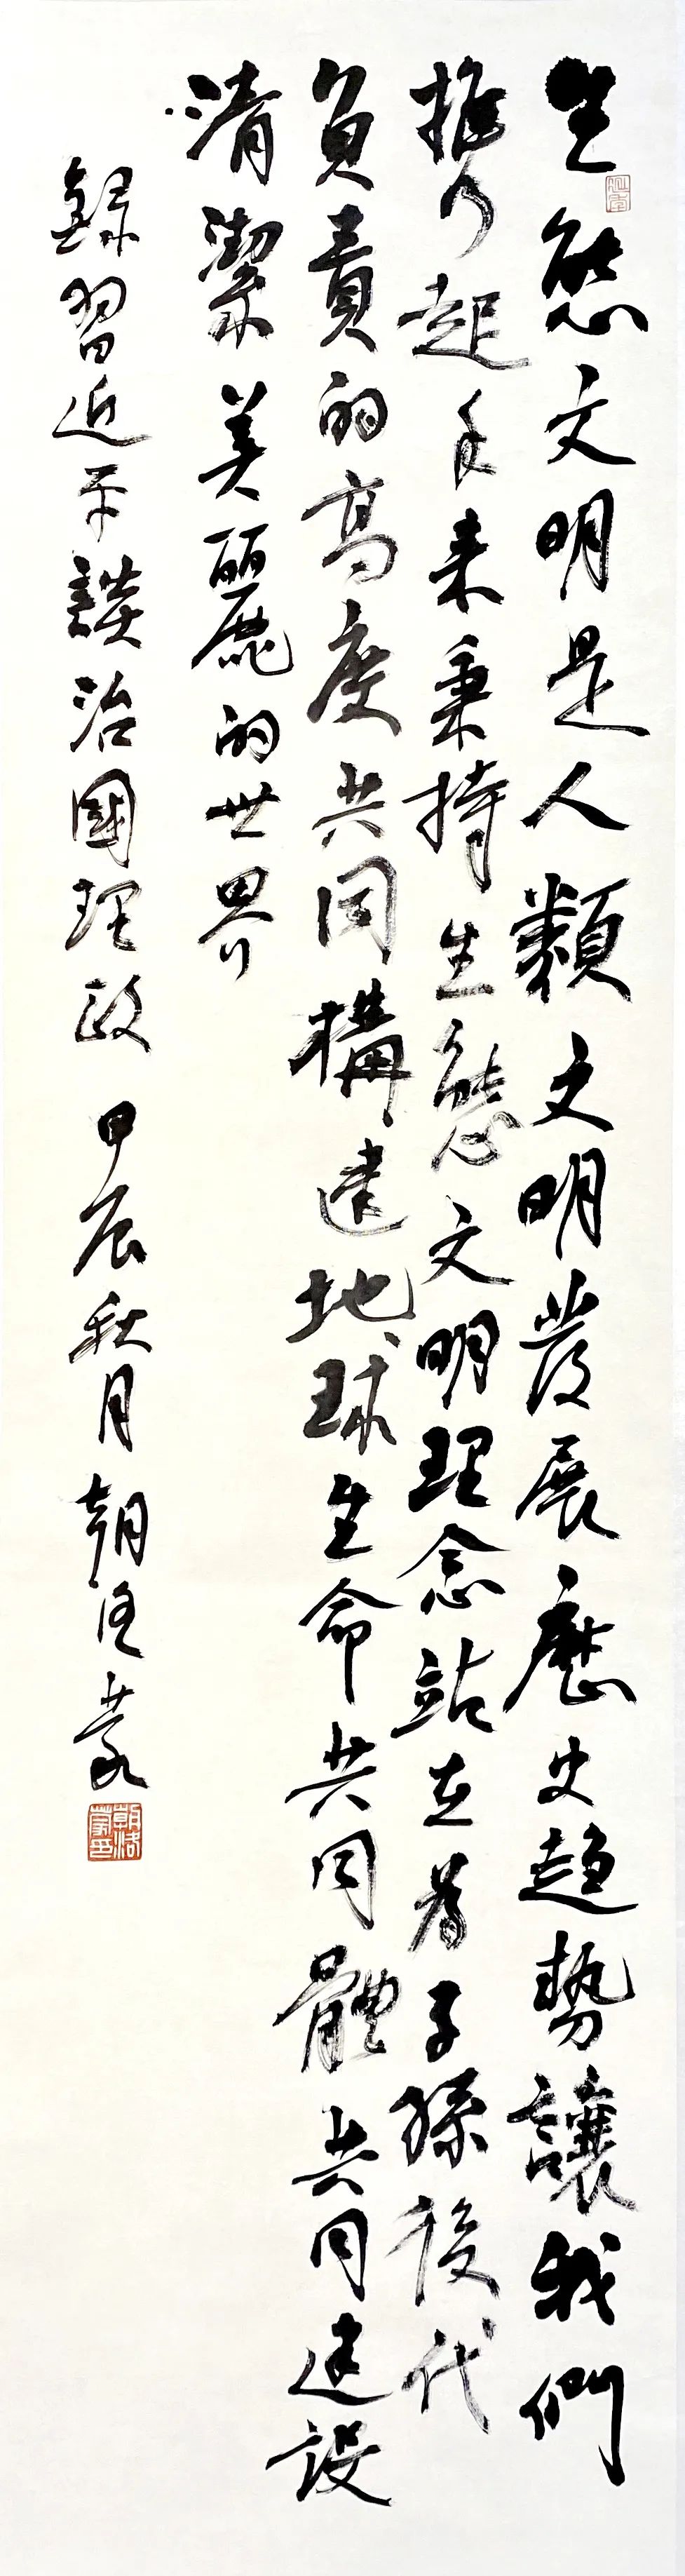 生態文明是人類文明發展歷史趨勢讓我們
攜起手來秉持生態文明理念站在為子孫後代
負責的高度共同構建地球生命共同體共同建設
清潔美麗的世界
錄習近平談治國理政 甲辰秋月朝洛蒙
朝洛蒙印